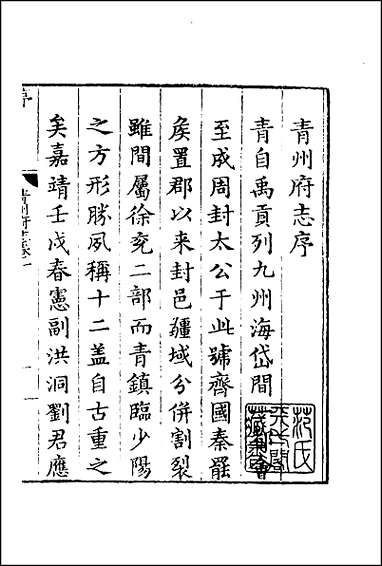 青州府志序
青自禹貢列九州海岱間
至成周封太公于此號齊國秦罷
矦置郡以来封邑疆域分併割裂
雖間屬徐兗二部而青鎮臨少陽
之方形勝夙稱十二盖自古重之
矣嘉靖壬戌春憲副洪洞劉君應
范氏天一閣藏書